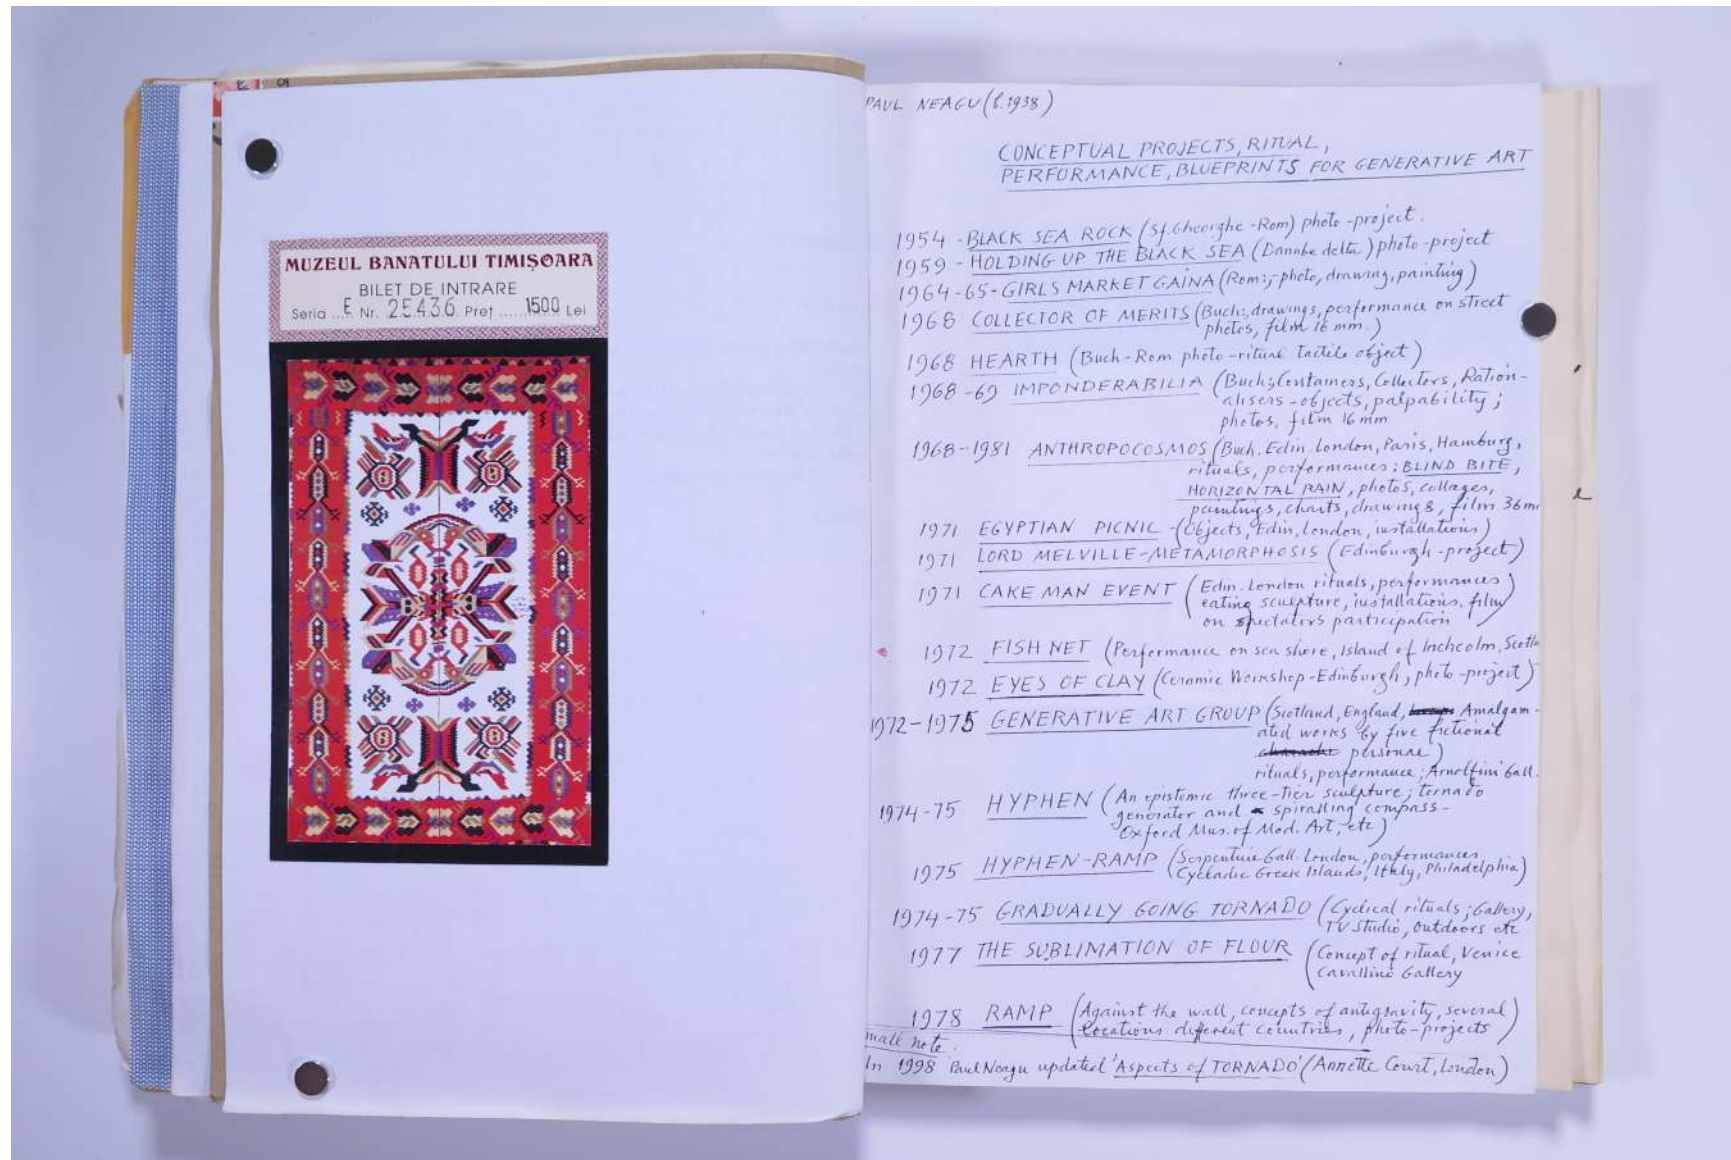 MUZEUL BANATULUI TIMIȘOARA
BILET DE INTRARE
Seria ....E Nr. 25436. Preț ......1500 Lei
PAUL NEAGU (b.1938)
CONCEPTUAL PROJECTS, RITUAL,
PERFORMANCE, BLUEPRINTS FOR GENERATIVE ART
1954 - BLACK SEA ROCK (Sf. Gheorghe - Rom) photo-project.
1959 - HOLDING UP THE BLACK SEA (Danube delta) photo-project
1964-65 - GIRLS MARKET GAINA (Rom:, photo, drawing, painting)
1968 COLLECTOR OF MERITS (Buch:, drawings, performance on street
photos, film 16 mm.)
1968 HEARTH (Buch-Rom photo-ritual tactile object)
1968-69 IMPONDERABILIA (Buch; Containers, Collectors, Ration-
alisers - objects, palpability;
photos, film 16 mm
1968-1981 ANTHROPOCOSMOS (Buch. Edin. London, Paris, Hamburg,
rituals, performances: BLIND BITE,
HORIZONTAL RAIN, photos, collages,
paintings, charts, drawings, film 36 m
1971 EGYPTIAN PICNIC - (Objects, Edin, London, installations)
1971 LORD MELVILLE-METAMORPHOSIS (Edinburgh-project)
1971 CAKE MAN EVENT (Edin. London rituals, performances
eating sculpture, installations, film
on spectators participation)
1972 FISH NET (Performance on sea shore, Island of Inchcolm, Scotla
1972 EYES OF CLAY (Ceramic Workshop-Edinburgh, photo-project)
1972-1975 GENERATIVE ART GROUP (Scotland, England, Amalgam-
ated works by five fictional
personae)
rituals, performance; Arnolfini Gall.
1974-75 HYPHEN (An epistemic three-tier sculpture; tornado
generator and spiralling compass-
Oxford Mus. of Mod. Art, etc)
1975 HYPHEN-RAMP (Serpentine Gall. London, performances
Cycladic Greek Islands, Italy, Philadelphia)
1974-75 GRADUALLY GOING TORNADO (Cyclical rituals; Gallery,
TV studio, outdoors etc
1977 THE SUBLIMATION OF FLOUR (Concept of ritual, Venice
Cavallino Gallery
1978 RAMP (Against the wall, concepts of antigravity, several
locations different countries, photo-projects)
mall note.
In 1998 Paul Neagu updated 'Aspects of TORNADO' (Annette Court, London)